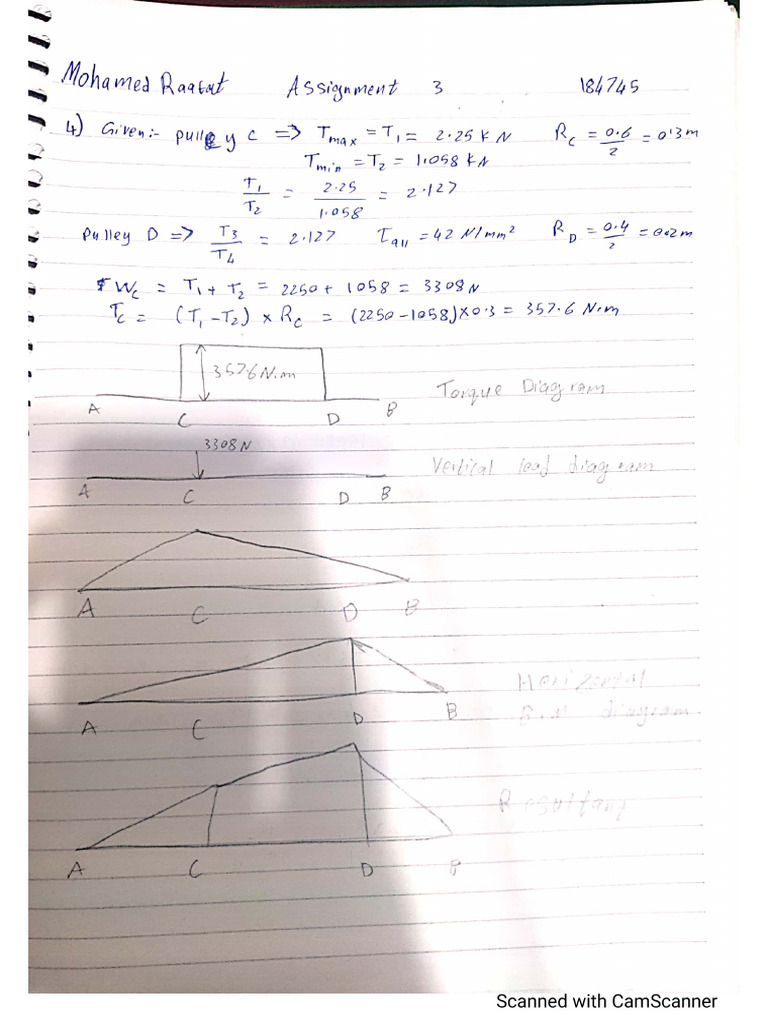 Mohamed Raafat Assignment 3 184745
4) Given:- pulley C => Tmax = T1 = 2.25 kN RC = 0.6/2 = 0.3m
Tmin = T2 = 1.058 kN
T1/T2 = 2.25/1.058 = 2.127
Pulley D => T3/T4 = 2.127 τall = 42 N/mm² RD = 0.4/2 = 0.2m
WC = T1 + T2 = 2250 + 1058 = 3308 N
TC = (T1 - T2) × RC = (2250 - 1058) × 0.3 = 357.6 N.m
357.6 N.m
Torque Diagram
A C D B
3308 N
Vertical load diagram
A C D B
A C D B
Horizontal
B.M diagram
A C D B
Resultant
A C D B
Scanned with CamScanner